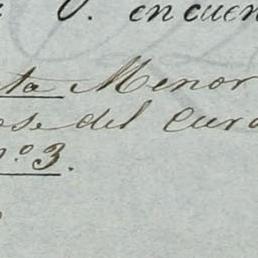 O. encuen
ta Menor
ose del Cura
n.º 3.